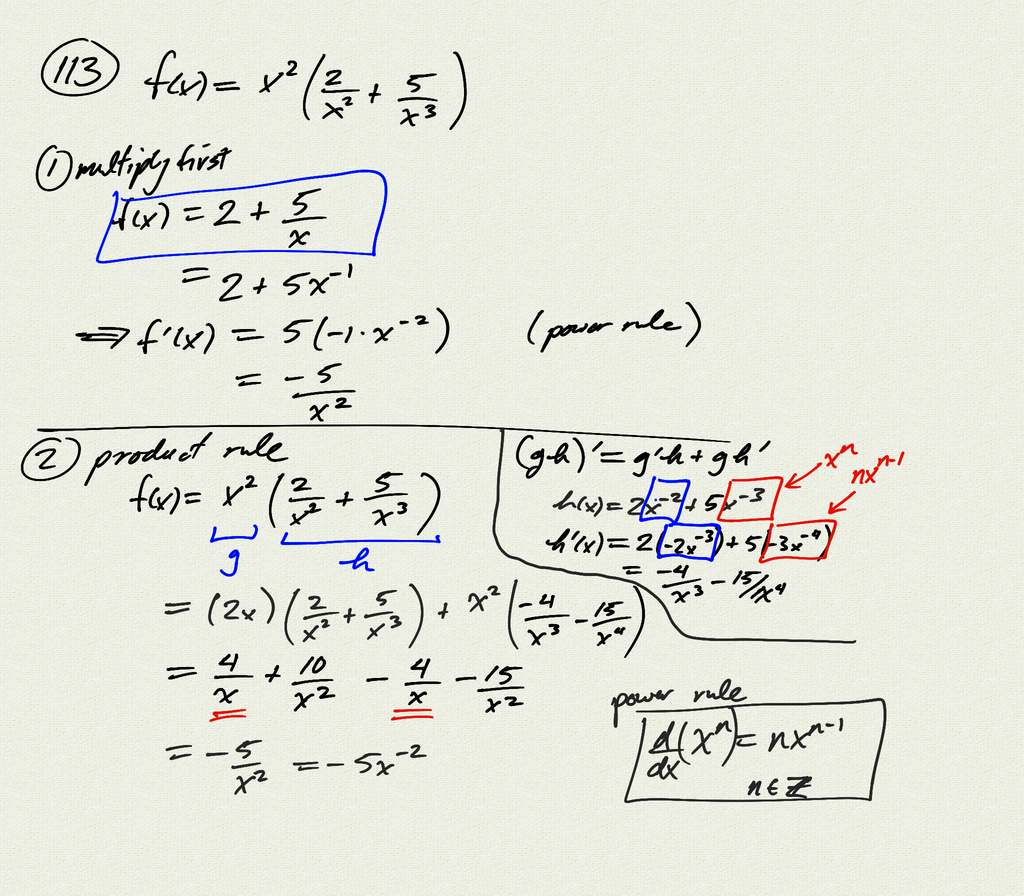 113 f(x) = x²(2/x² + 5/x³)
① multiply first
f(x) = 2 + 5/x
= 2 + 5x⁻¹
⟹ f'(x) = 5(-1·x⁻²) (power rule)
= -5/x²
② product rule
f(x) = x²(2/x² + 5/x³)
g h
= (2x)(2/x² + 5/x³) + x²(-4/x³ - 15/x⁴)
= 4/x + 10/x² - 4/x - 15/x²
= -5/x² = -5x⁻²
(gh)' = g'h + gh'
h(x) = 2x⁻² + 5x⁻³
xⁿ
nxⁿ⁻¹
h'(x) = 2(-2x⁻³) + 5(-3x⁻⁴)
= -4/x³ - 15/x⁴
power rule
d/dx(xⁿ) = nxⁿ⁻¹
n∈ℤ